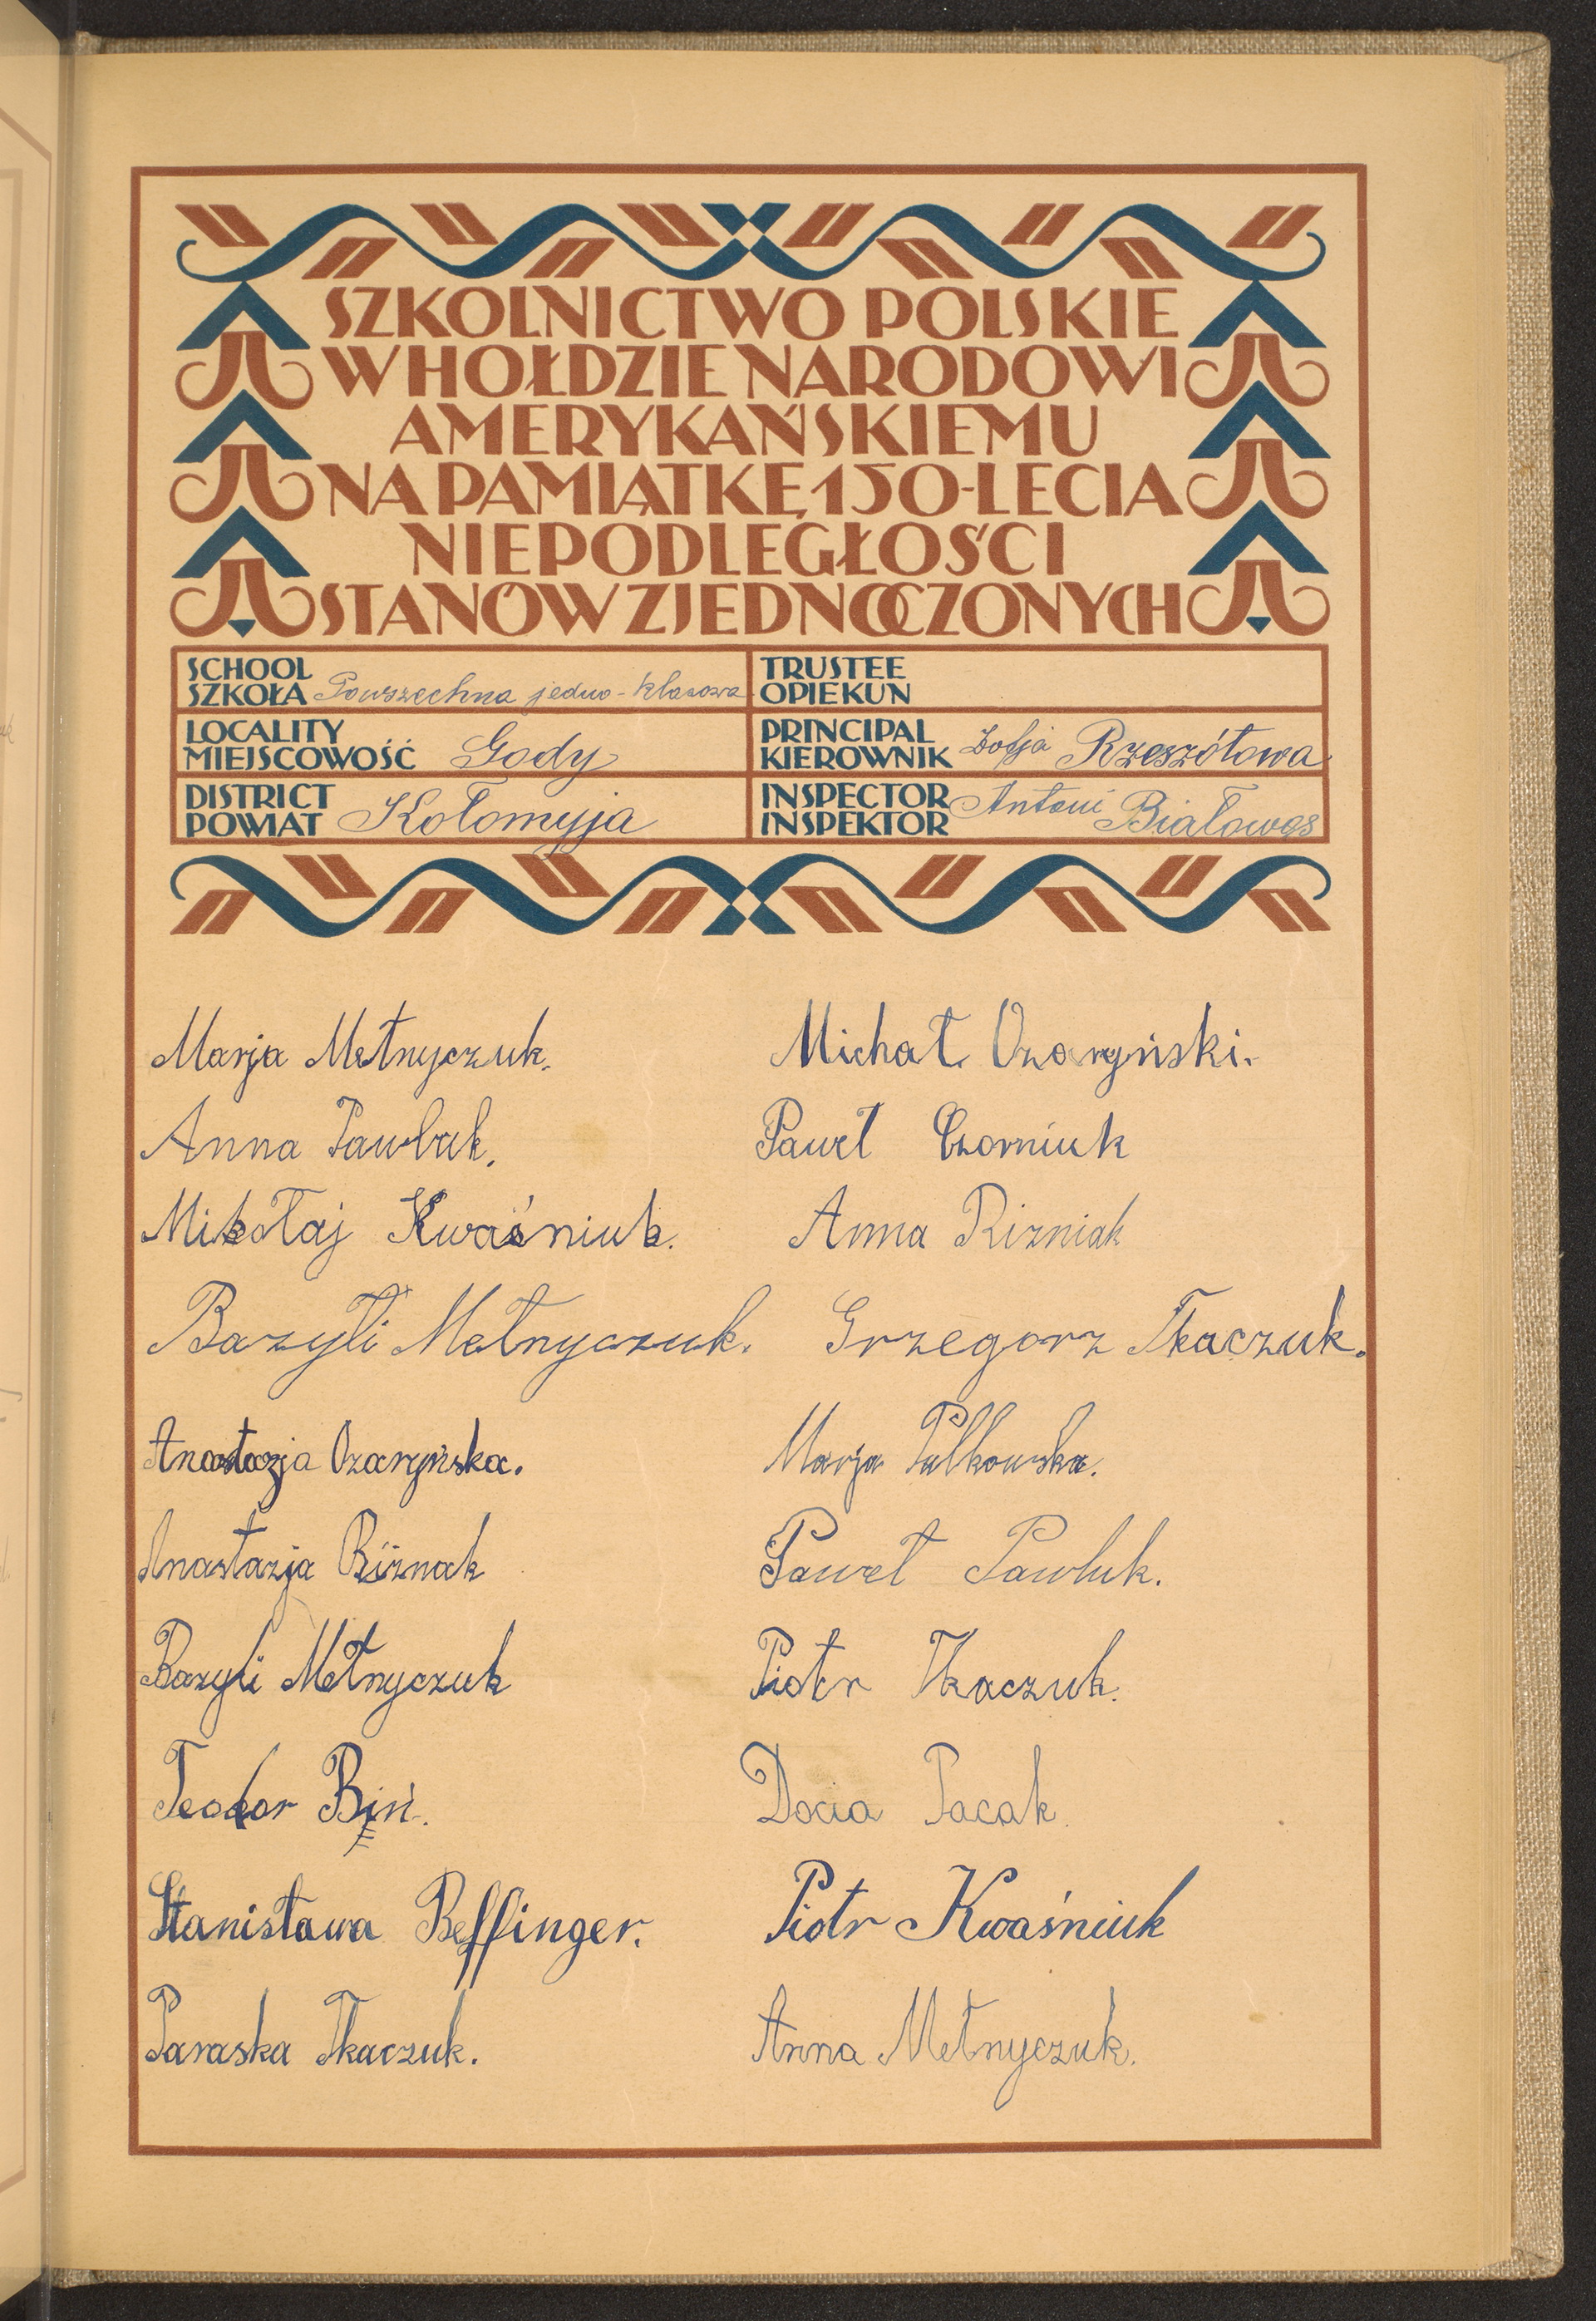 SZKOLNICTWO POLSKIE
W HOŁDZIE NARODOWI
AMERYKAŃSKIEMU
NA PAMIĄTKĘ 150-LECIA
NIEPODLEGŁOŚCI
STANÓW ZJEDNOCZONYCH
SCHOOL
SZKOŁA Powszechna jedno-klasowa
LOCALITY
MIEJSCOWOŚĆ Gody
DISTRICT
POWIAT Kołomyja
TRUSTEE
OPIEKUN
PRINCIPAL
KIEROWNIK Zofja Rzeszótowa
INSPECTOR
INSPEKTOR Antoni Białowąs
Marja Mełnyczuk.
Anna Pawluk.
Mikołaj Kwaśniuk.
Bazyli Mełnyczuk.
Anastazja Ozaryńska.
Anastazja Riżnak
Bazyli Mełnyczuk
Teodor
Stanisława Beffinger.
Paraska Tkaczuk.
Michał Ozaryński.
Paweł Czorniuk
Anna Rizniak
Grzegorz Tkaczuk.
Marja Pulkowska.
Paweł Pawluk.
Piotr Tkaczuk.
Docia Pacak.
Piotr Kwaśniuk
Anna Mełnyczuk.